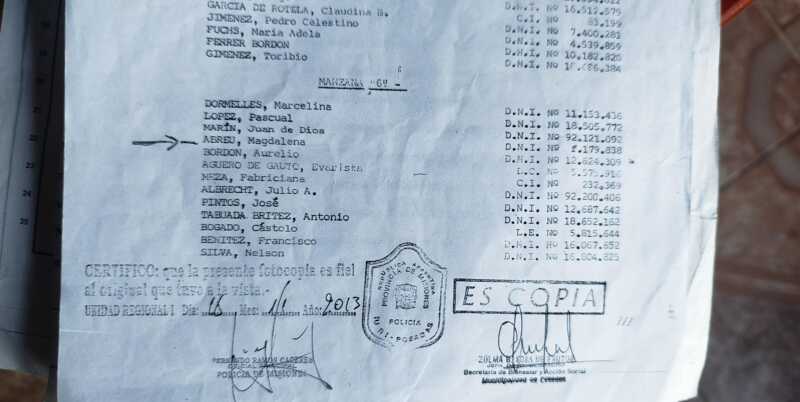 GARCIA DE ROTELA, Claudina B. D.N.I. Nº 16.512.575
JIMENEZ, Pedro Celestino C.I. Nº 83.199
FUCHS, Maria Adela D.N.I. Nº 7.400.281
FERRER BORDON D.N.I. Nº 4.539.859
GIMENEZ, Toribio D.N.I. Nº 10.182.825
D.N.I. Nº
MANZANA "G" -
DORMELLES, Marcelina D.N.I. Nº 11.153.436
LOPEZ, Pascual D.N.I. Nº 18.505.772
MARÍN, Juan de Dios D.N.I. Nº 92.121.092
ABREU, Magdalena D.N.I. Nº 179.838
BORDON, Aurelio D.N.I. Nº 12.624.309
AGUERO DE GAUTO, Evarista L.C. Nº 5.575.916
MEZA, Fabriciana C.I. Nº 232.369
ALBRECHT, Julio A. D.N.I. Nº 92.200.406
PINTOS, José D.N.I. Nº 12.687.642
TABUADA BRITEZ, Antonio D.N.I. Nº 18.652.162
BOGADO, Cástolo L.E. Nº 5.815.644
BENITEZ, Francisco D.N.I. Nº 16.067.652
SILVA, Nelson D.N.I. Nº 16.804.825
CERTIFICO: que la presente fotocopia es fiel
al original que tuve a la vista.-
UNIDAD REGIONAL I Día: 16 Mes: Año: 2013
REPUBLICA ARGENTINA
PROVINCIA DE MISIONES
POLICIA
POSADAS
ES COPIA
FERNANDO RAMON CACERES
OFICIAL PRINCIPAL
POLICIA DE MISIONES
ZULMA
Secretaria de Bienestar y Acción Social